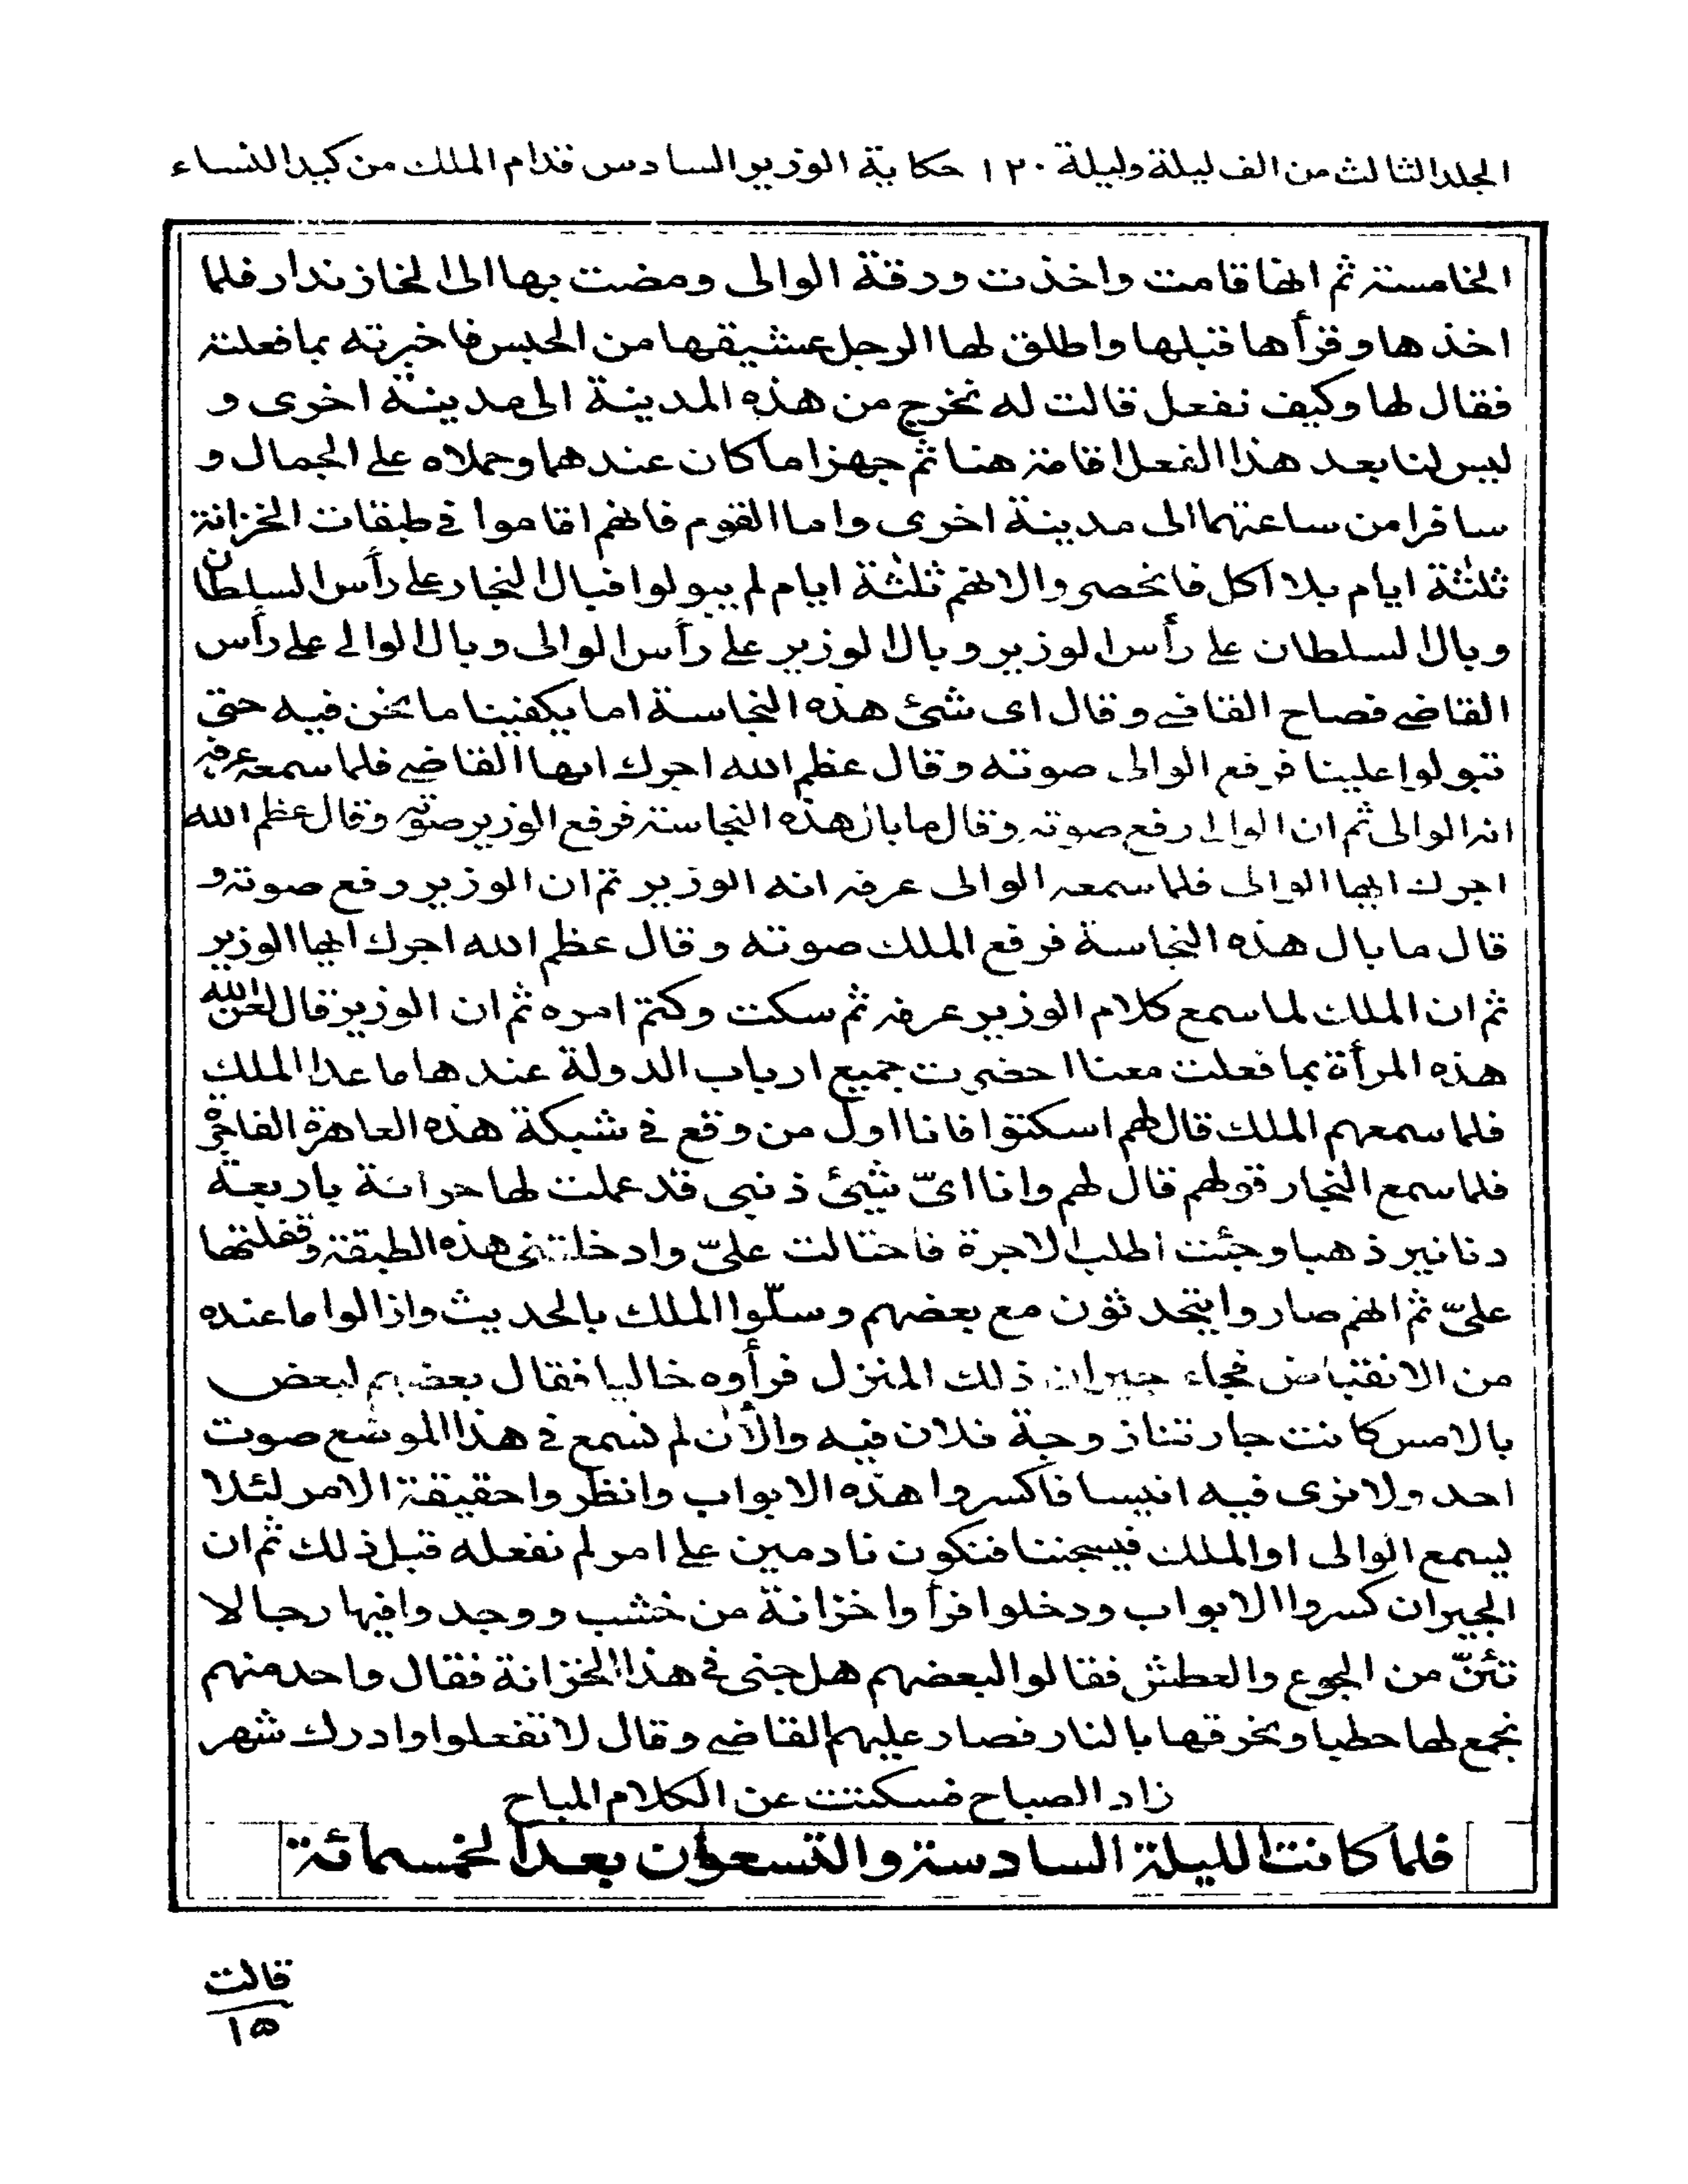 المجلد الثالث من الف ليلة وليلة ١٢٠ حكاية الوزير السادس قدام الملك من كيد النساء
الخامسة ثم انها قامت واخذت ورقة الوالى ومضت بها الى الخازندار فلما
اخذها وقرأها قبلها واطلق لها الرجل عشيقها من الحبس فاخبرته بما فعلته
فقال لها وكيف نفعل قالت له نخرج من هذه المدينة الى مدينة اخرى و
ليس لنا بعد هذا الفعل اقامة هنا ثم جهزا ما كان عندهما وحملاه على الجمال و
سافرا من ساعتهما الى مدينة اخرى واما القوم فانهم اقاموا فى طبقات الخزانة
ثلثة ايام بلا اكل فانحصروا لانهم ثلثة ايام لم يبولوا فبال النجار على رأس السلطان
وبال السلطان على رأس الوزير وبال الوزير على رأس الوالى وبال الوالى على رأس
القاضى فصاح القاضى وقال اى شئ هذه النجاسة اما يكفينا ما نحن فيه حتى
تبولوا علينا فرفع الوالى صوته وقال عظم الله اجرك ايها القاضى فلما سمعه عرفه
انه الوالى ثم ان الوالى رفع صوته وقال ما بال هذه النجاسة فرفع الوزير صوته وقال عظم الله
اجرك ايها الوالى فلما سمعه الوالى عرفه انه الوزير ثم ان الوزير رفع صوته و
قال ما بال هذه النجاسة فرفع الملك صوته وقال عظم الله اجرك ايها الوزير
ثم ان الملك لما سمع كلام الوزير عرفه ثم سكت وكتم امره ثم ان الوزير قال لعن الله
هذه المرأة بما فعلت معنا احضرت جميع ارباب الدولة عندها ما عدا الملك
فلما سمعهم الملك قال لهم اسكتوا فانا اول من وقع فى شبكة هذه العاهرة الفاجرة
فلما سمع النجار قولهم قال لهم وانا اىّ شئ ذنبى قد عملت لها خزانة باربعة
دنانير ذهبا وجئت اطلب الاجرة فاحتالت علىّ وادخلتنى هذه الطبقة وقفلتها
علىّ ثم انهم صاروا يتحدثون مع بعضهم وسلّوا الملك بالحديث وازالوا ما عنده
من الانقباض فجاء جيران ذلك المنزل فرأوه خاليا فقال بعضهم لبعض
بالامس كانت جارتنا زوجة فلان فيه والآن لم نسمع فى هذا الموضع صوت
احد ولا نرى فيه انيسا فاكسروا هذه الابواب وانظروا حقيقة الامر لئلا
يسمع الوالى او الملك فيسجننا فنكون نادمين على امر لم نفعله قبل ذلك ثم ان
الجيران كسروا الابواب ودخلوا فرأوا خزانة من خشب ووجدوا فيها رجالا
تئنّ من الجوع والعطش فقالوا لبعضهم هل جنى فى هذا الخزانة فقال واحد منهم
نجمع لها حطبا ونحرقها بالنار فصار عليهم القاضى وقال لا تفعلوا وادرك شهر
زاد الصباح فسكتت عن الكلام المباح
فلما كانت الليلة السادسة والتسعون بعد الخمسمائة
قالت
١٥